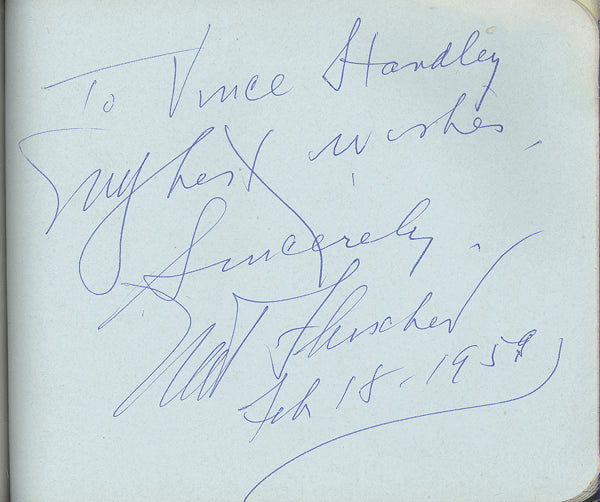 To Vince Standley
My best wishes,
Sincerely,
Nat Fleischer
Feb 18 - 1959